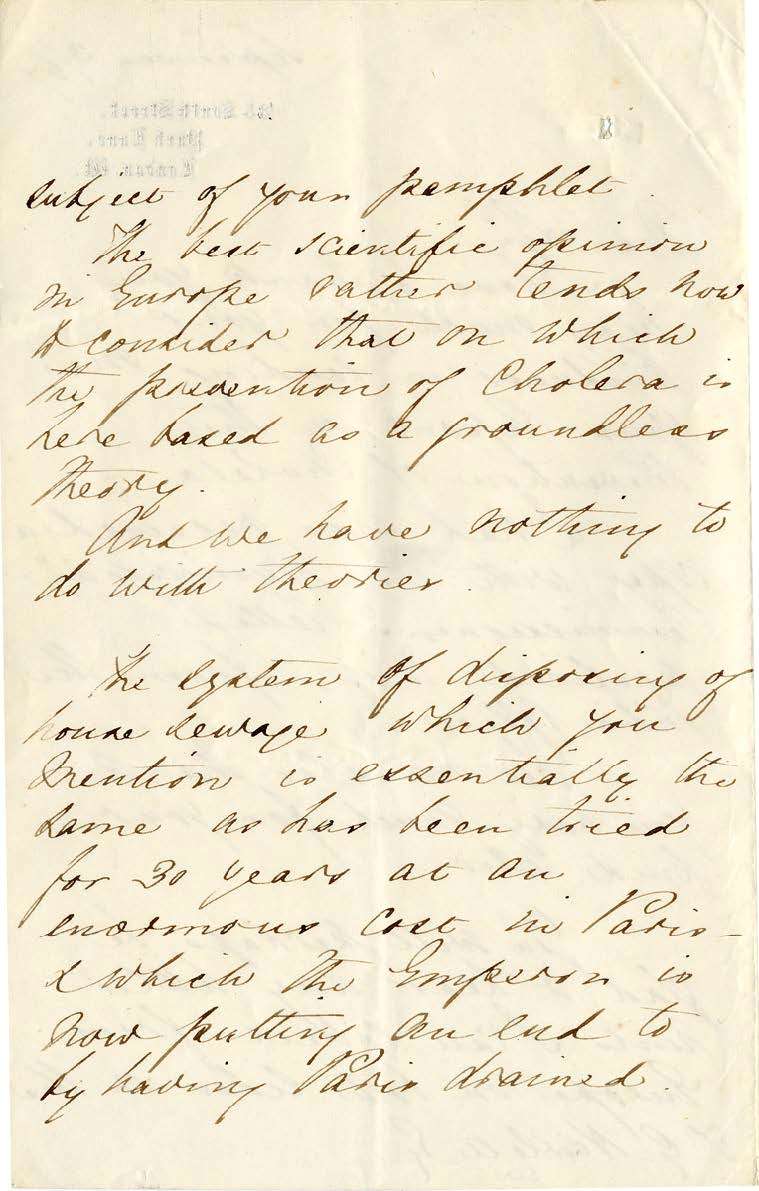 subject of your pamphlet.
The best scientific opinion
in Europe rather tends now
to consider that on which
the prevention of Cholera is
here based as a groundless
theory.
And we have nothing to
do with theories.
The system of disposing of
house sewage which you
mention is essentially the
same as has been tried
for 30 years at an
enormous cost in Paris -
& which the Emperor is
now putting an end to
by having Paris drained.